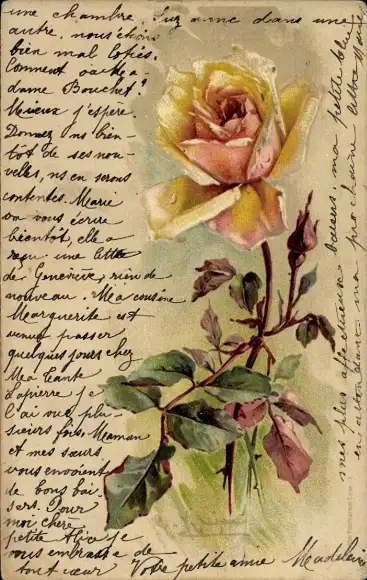 une chambre, Suzanne dans une
autre, nous étions
bien mal logées.
Comment va Ma-
dame Bouchet?
Mieux j'espère.
Donnez ns bien-
tôt de ses nou-
velles, ns en serons
contentes. Marie
va vous écrire
bientôt, elle a
reçu une lettre
de Geneviève, rien de
nouveau. Ma cousine
Marguerite est
venue passer
quelques jours chez
Ma tante
Lapierre je
l'ai vue plu-
sieurs fois. Maman
et mes sœurs
vous envoient
de bons bai-
sers. Pour
moi chère
petite Alice je
vous embrasse de
tout cœur Votre petite amie Madeleine
mes plus affectueux baisers, ma petite
en attendant ma prochaine lettre